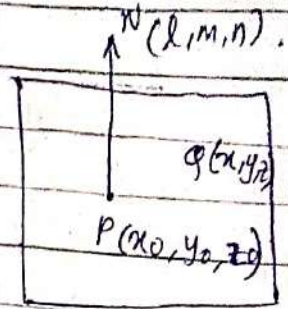 N (l, m, n).
Q(x, y, z)
P(x0, y0, z0)